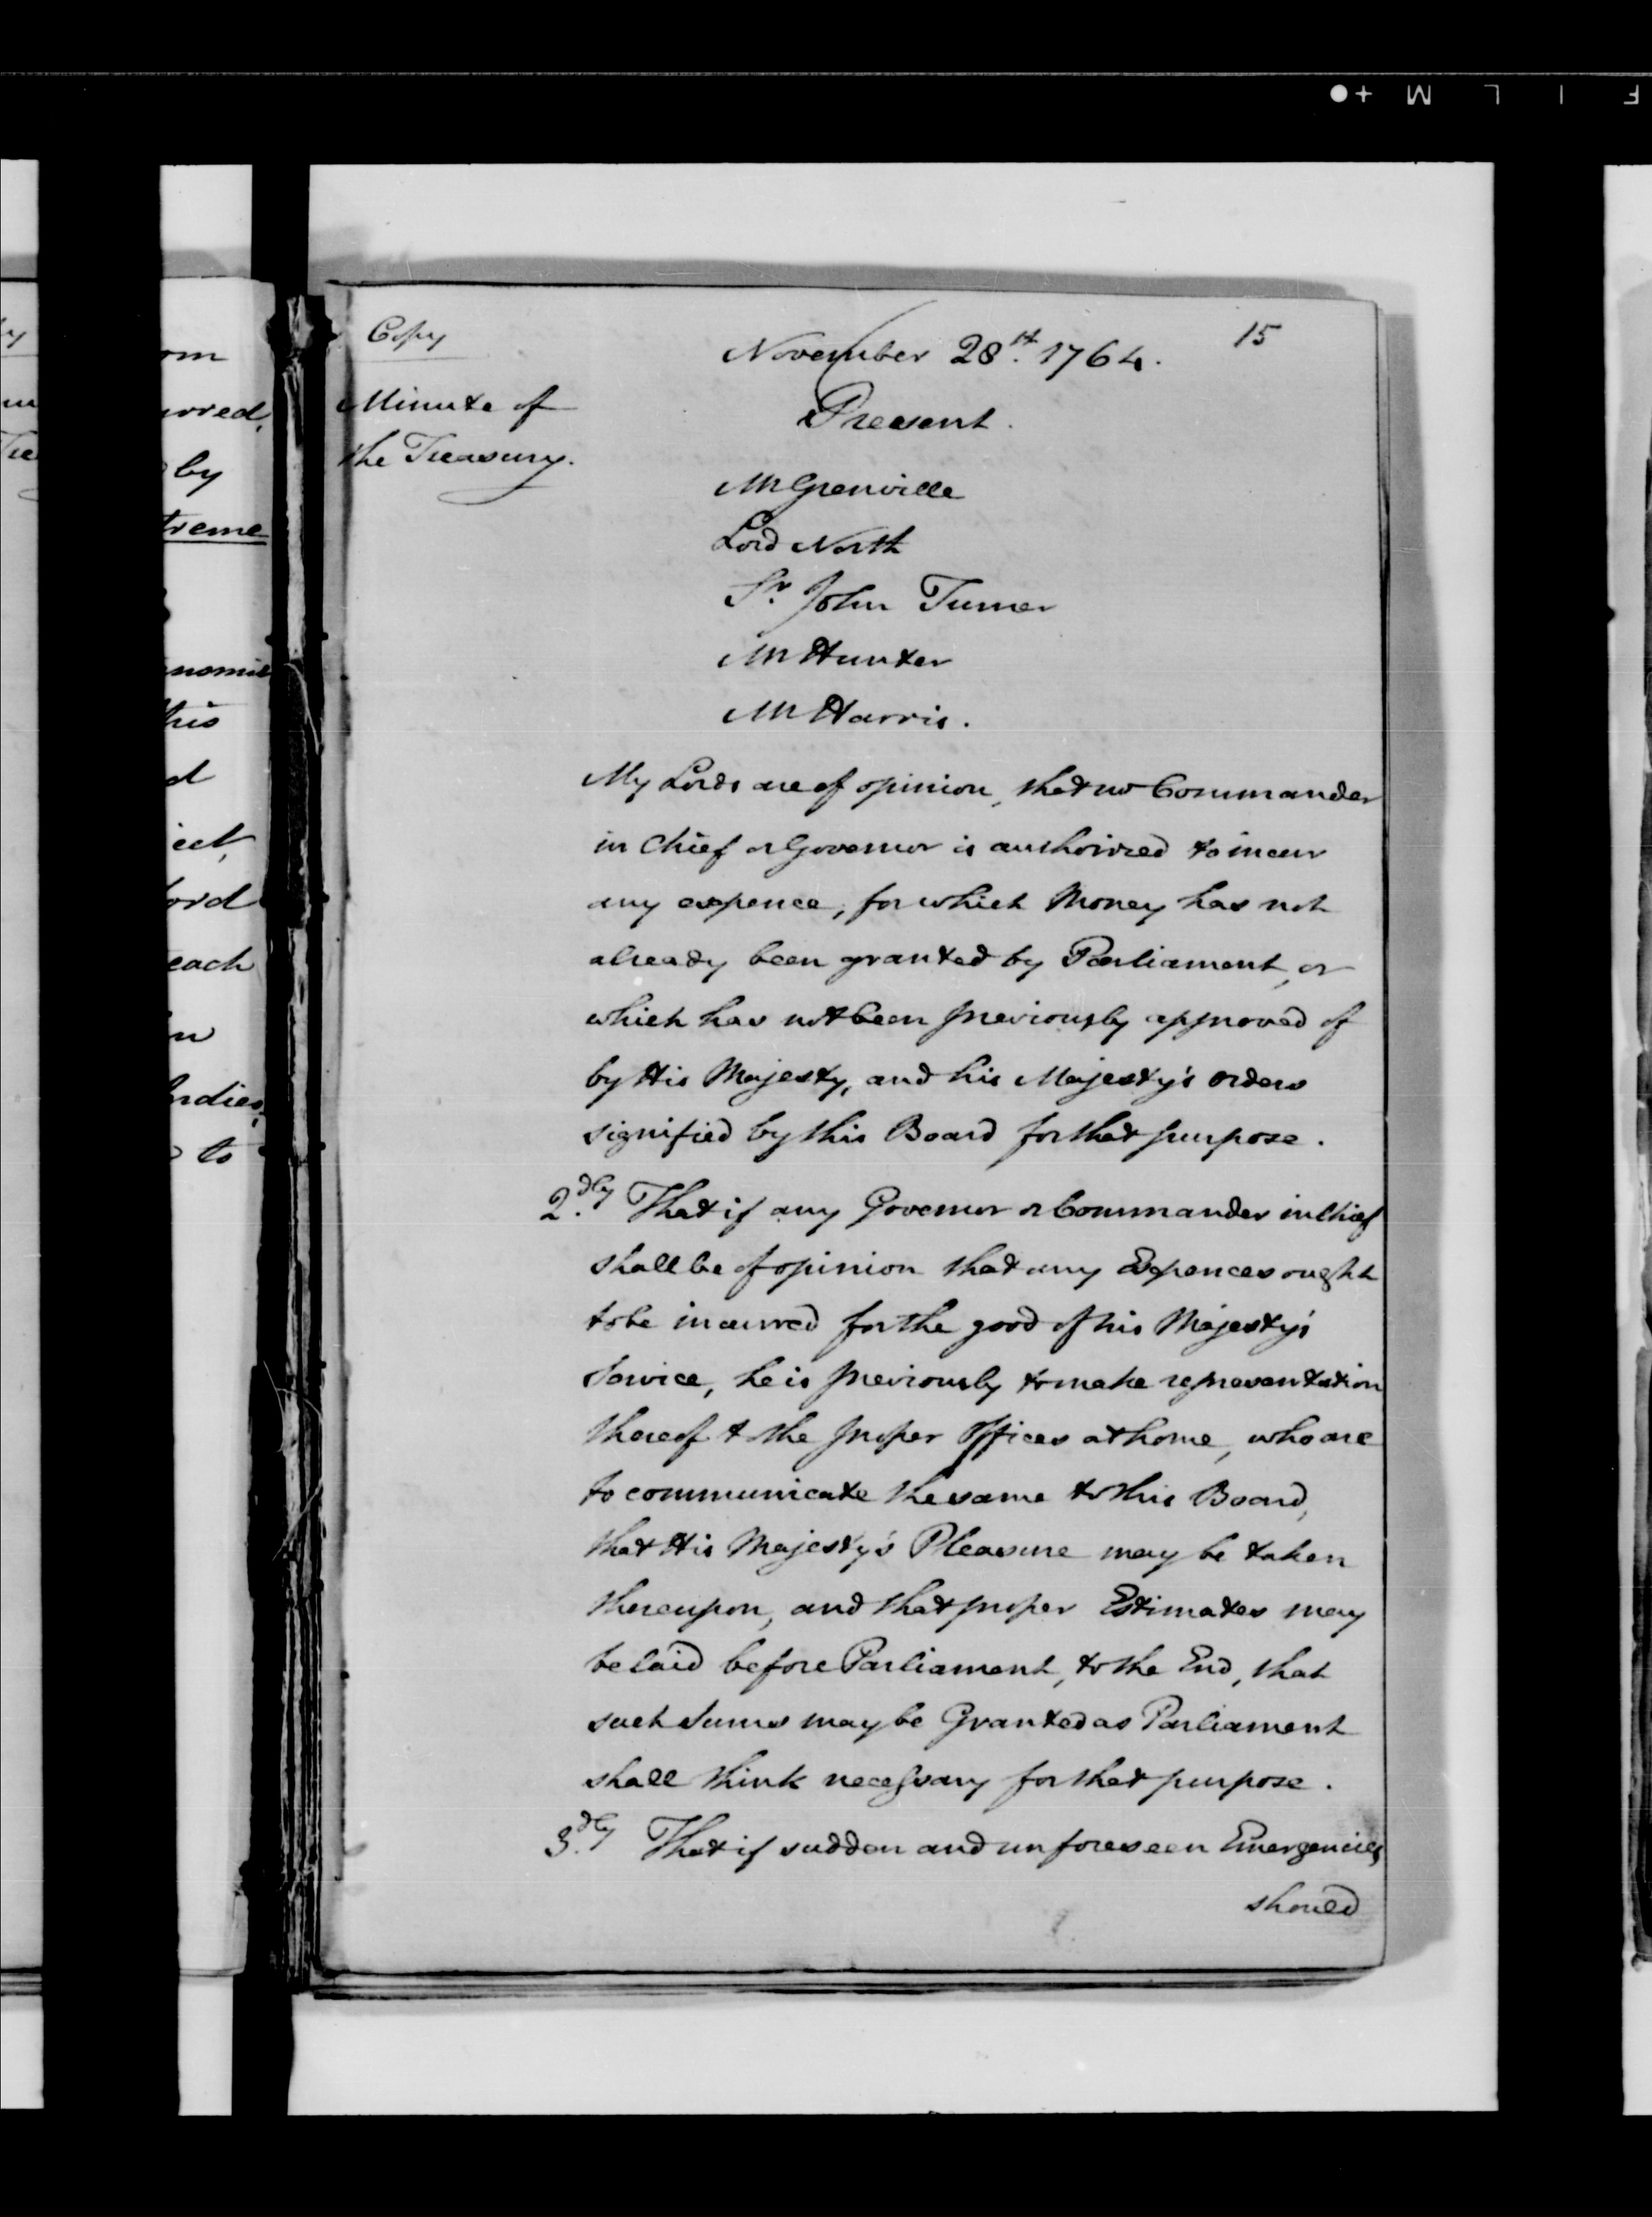 15
Copy
November 28th. 1764.
Minute of
the Treasury.
Present.
Mr Grenville
Lord North
Sr. John Turner
Mr Hunter
Mr Harris.
My Lords are of opinion, that no Commander
in Chief or Governor is authorized to incur
any expence, for which Money has not
already been granted by Parliament, or
which has not been previously approved of
by His Majesty, and his Majesty's orders
signified by this Board for that purpose.
2.dly That if any Governor or Commander in Chief
shall be of opinion that any Expences ought
to be incurred for the good of his Majesty's
Service, he is previously to make representation
thereof to the proper Offices at home, who are
to communicate the same to this Board,
that His Majesty's Pleasure may be taken
thereupon, and that proper Estimates may
be laid before Parliament, to the End, that
such Sums may be Granted as Parliament
shall think necessary for that purpose.
3.dly That if sudden and unforeseen Emergencies
should
by
treme
his
each
to
F I L M